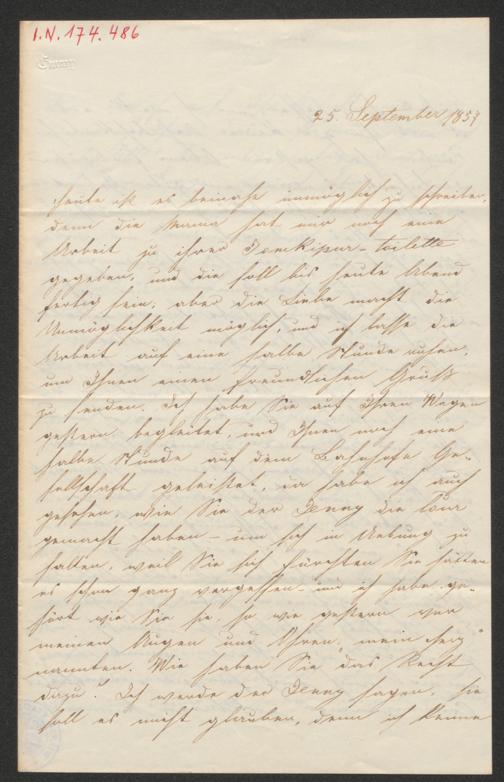 I.N. 174.486
25. September 1857
Heute ist es beinahe unmöglich zu schreiben,
denn die Mama hat mir noch eine
Arbeit zu ihrer Jomkipur-toilette
gegeben, und die soll bis heute Abend
fertig sein; aber die Liebe macht die
Unmöglichkeit möglich, und ich lasse die
Arbeit auf eine halbe Stunde ruhen,
um Ihnen einen freundlichen Gruß
zu senden. Ich habe Sie auf Ihren Wegen
gestern begleitet, und Ihnen noch eine
halbe Stunde auf dem Bahnhofe Ge-
sellschaft geleistet, da habe ich auch
gesehen, wie Sie der Jenny die Cour
gemacht haben – um sich in Uebung zu
halten, weil Sie sich fürchten Sie hätten
es schon ganz vergessen – und ich habe ge-
hört wie Sie sie, so wie gestern vor
meinen Augen und Ohren, "mein Herz"
nannten. Wie haben Sie das Recht
dazu? Ich werde der Jenny sagen, sie
soll es nicht glauben, denn ich kenne